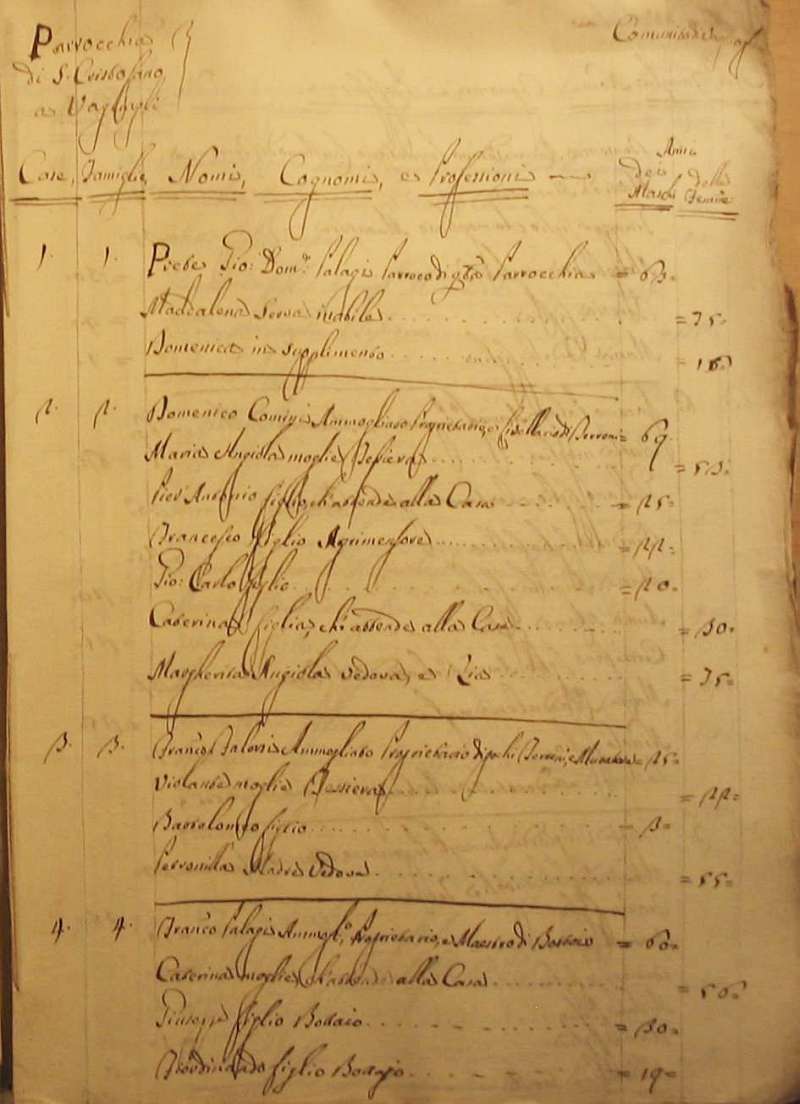 Parrocchia
di S. Cristofano
a Vagli
Comunità di
Case, Famiglie, Nomi, Cognomi, e Professioni
Anni
dei Maschi
delle Femine
1. 1. Prete Gio: Dom.co Palagi Parroco di q.ta Parrocchia = 63.
Maddalena Serva nubile = 75.
Domenica in supplimento = 16
2. 2. Domenico Comini Ammogliato Proprietario, e Livellario di Terreni = 69
Maria Angiola moglie Tessiera = 53.
Pier Antonio figlio, ch'attende alla Casa = 25.
Francesco figlio Agrimensore = 22.
Gio: Carlo figlio = 20.
Caterina figlia, ch'attende alla Casa = 30.
Margherita Angiola vedova, e Zia = 75.
3. 3. Franc.o Ammogliato Proprietario di pochi Terreni, e Muratore = 25.
Violante moglie Tessiera = 22.
Bartolomeo figlio = 3.
Petronilla Madre Vedova = 55.
4. 4. Franc.o Palagi Ammogl.o Proprietario, e Maestro di = 60.
Caterina moglie ch'attende alla Casa = 56
Giuseppe figlio = 30.
Ferdinando figlio = 19.